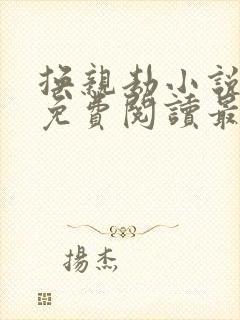 換親劫小說
免費閱讀最
揚杰